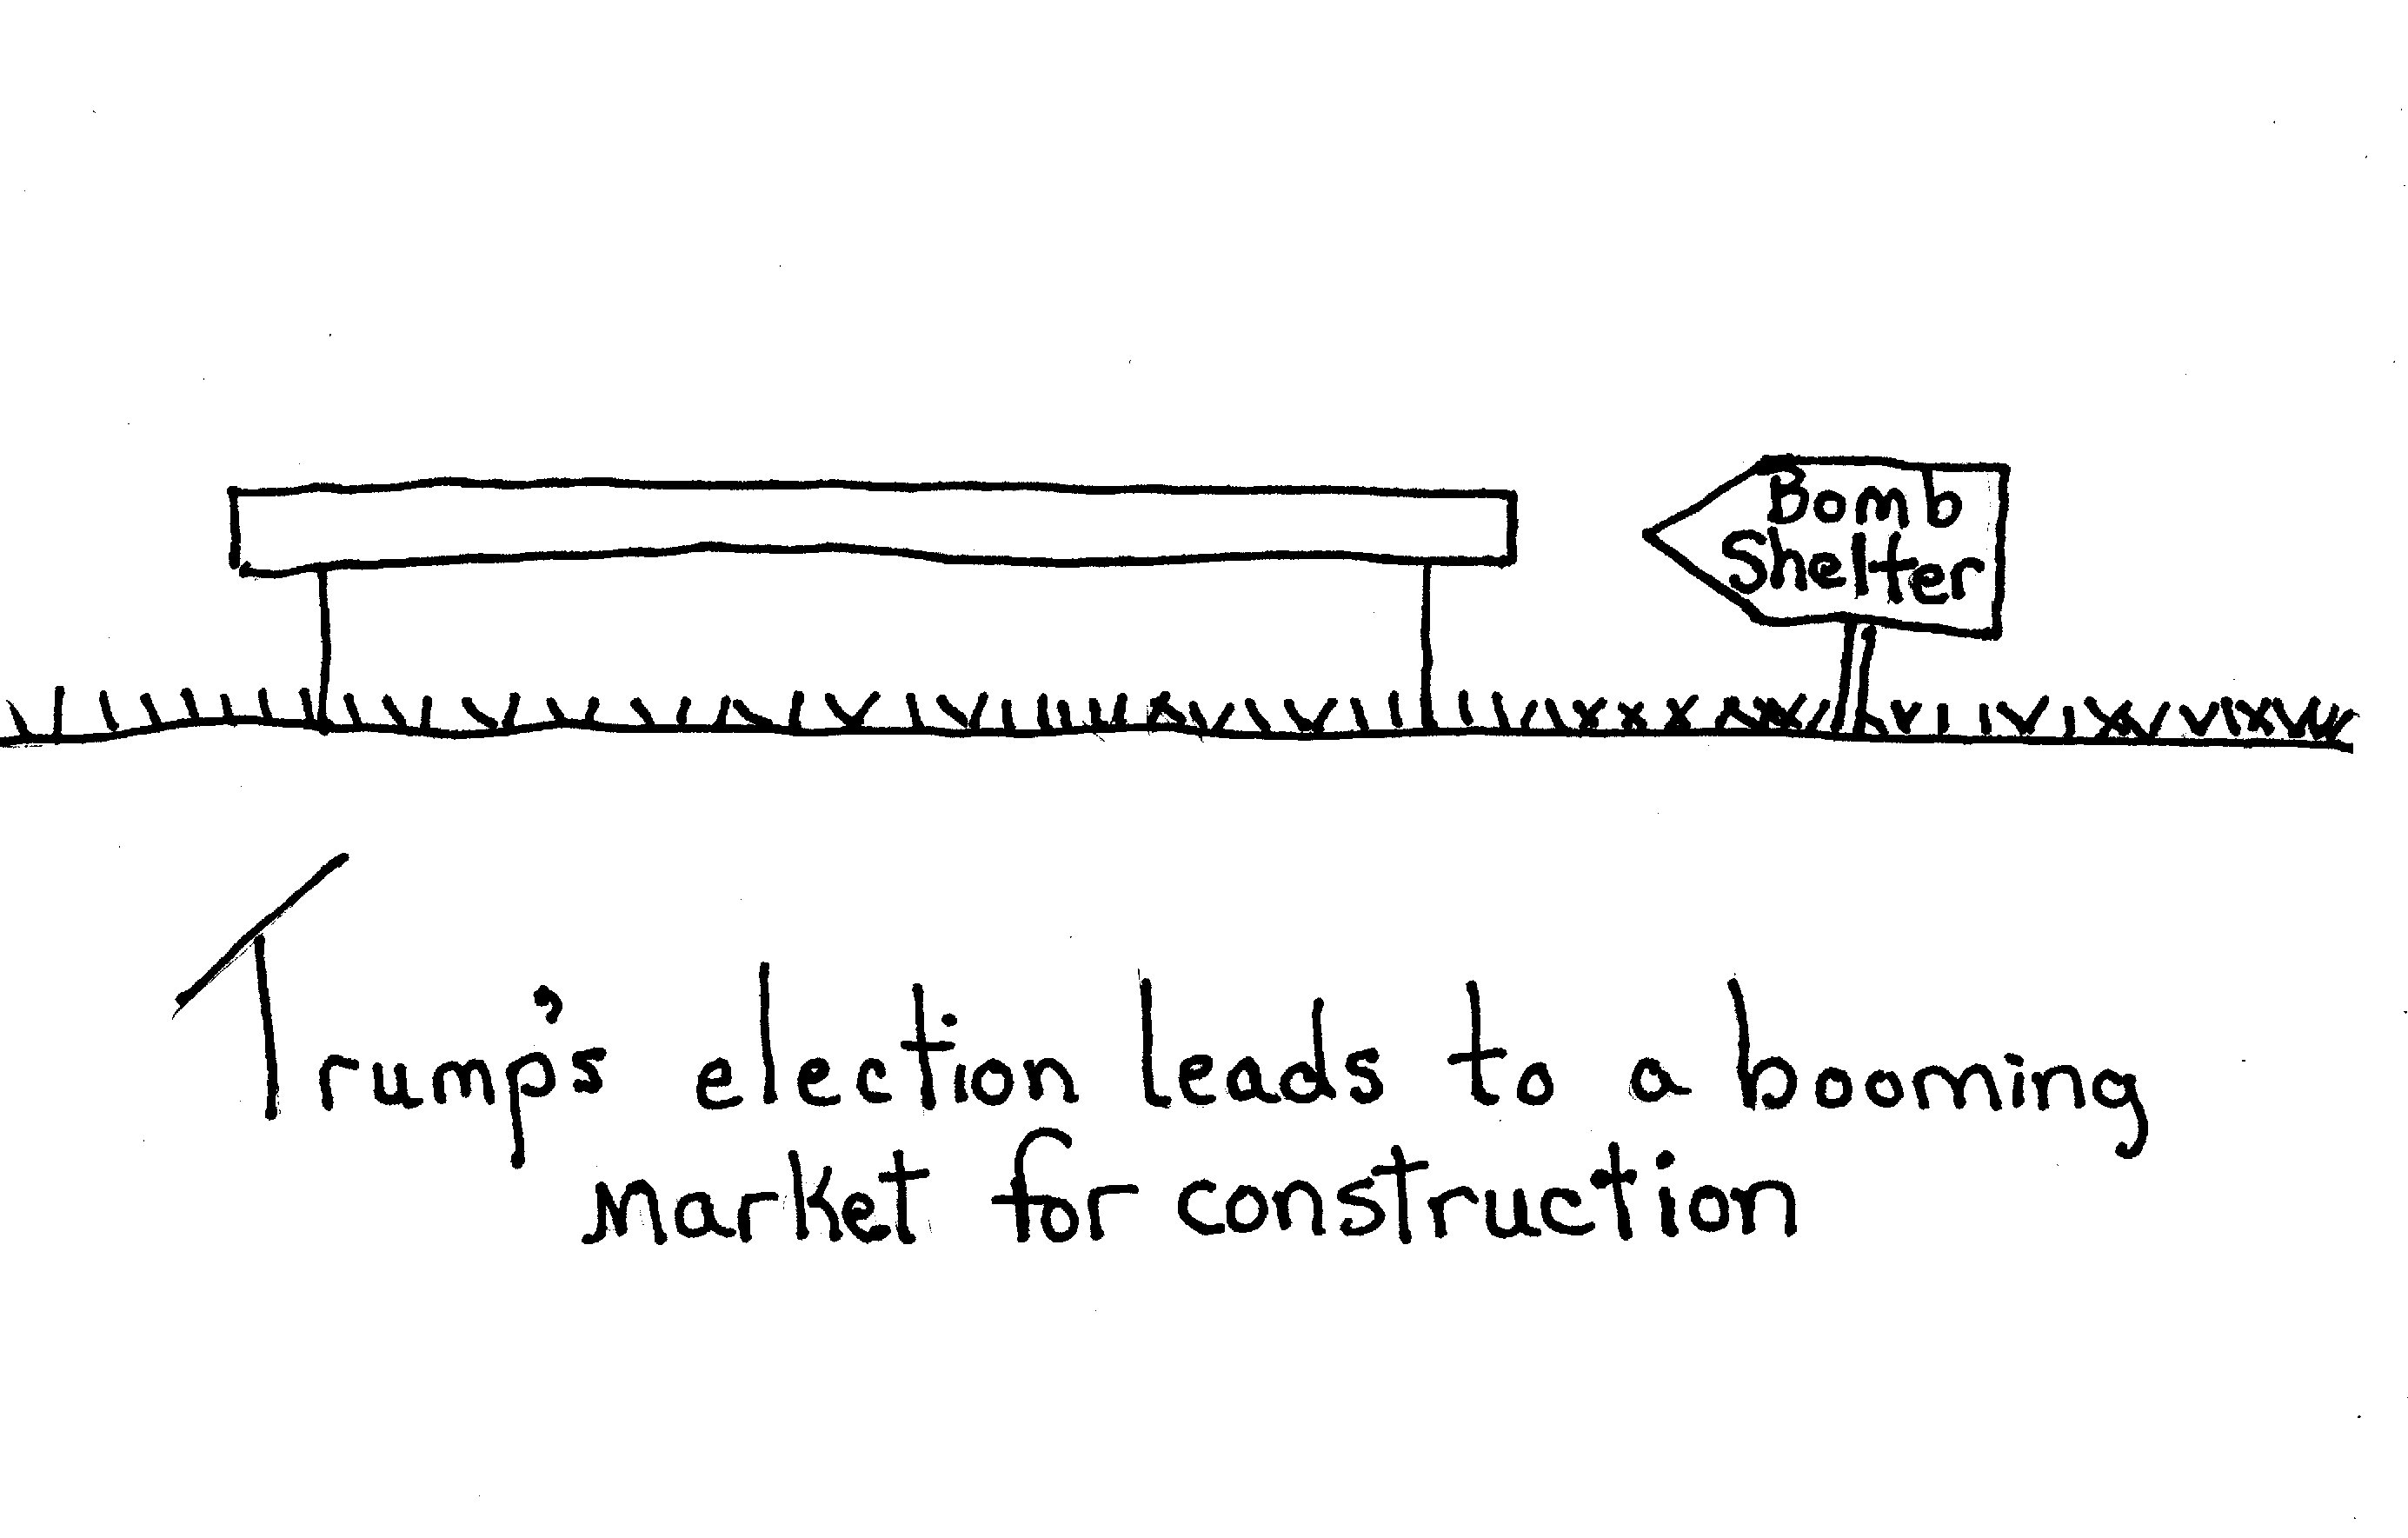 Bomb
Shelter
Trump's election leads to a booming
market for construction